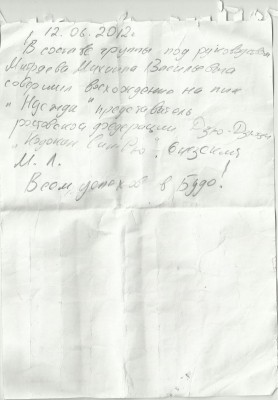 12.06.2012г
В составе группы под руководством
Михаила Васильевича
совершил восхождение на пик
"Надежда" представитель
ростовской федерации Дзю-Дзюцу
М. Л.
Всем успехов в Будо!